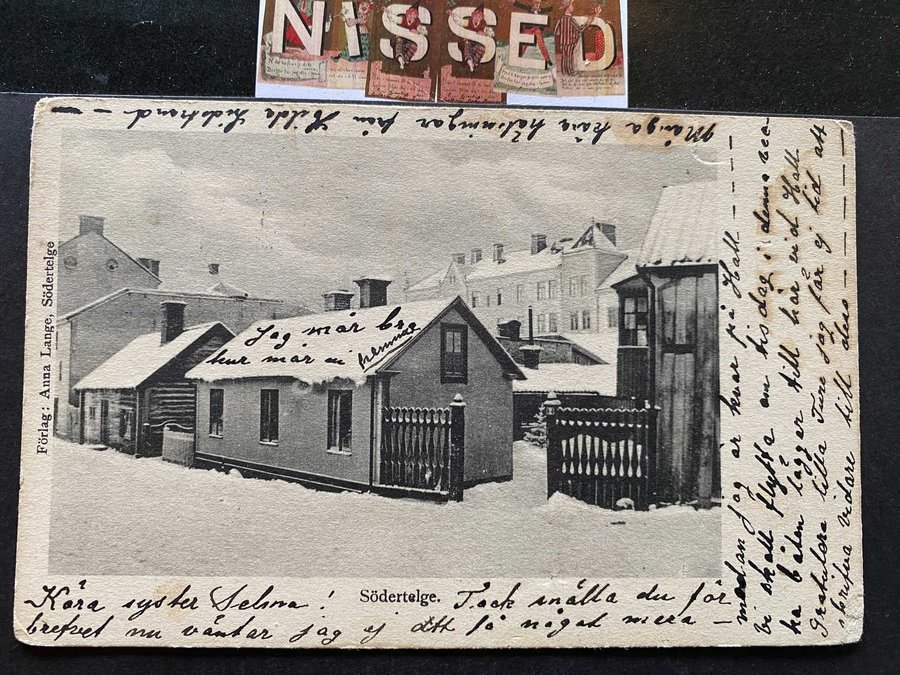 NISSED
Många kära hälsningar från Hilda Lidstrand —
Förlag: Anna Lange, Södertelge
Jag mår bra
hur mår ni hemma
Kära syster Selma! Södertelge. Tack snälla du för
brefvet nu väntar jag ej att få något mera —
medan jag är kvar på Hall — —
Vi skall flytta om tisdag i denna vec-
ka båten lägger till här vid Hall
Gratulera lilla Ture jag får ej tid att
skrifva vidare till dess — — —